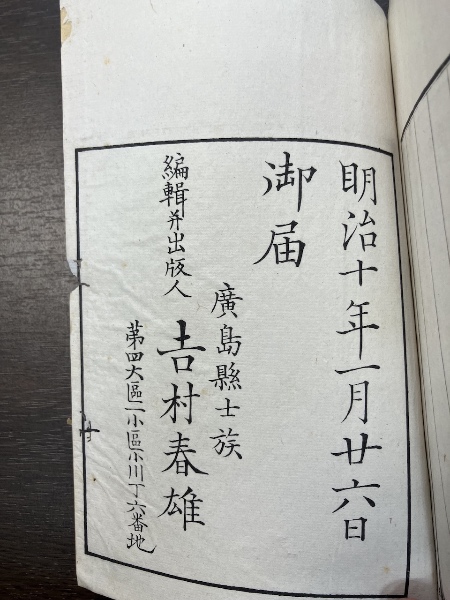 明治十年一月廿六日
御届
廣島縣士族
編輯并出版人 𠮷村春雄
第四大區一小區小川丁六番地